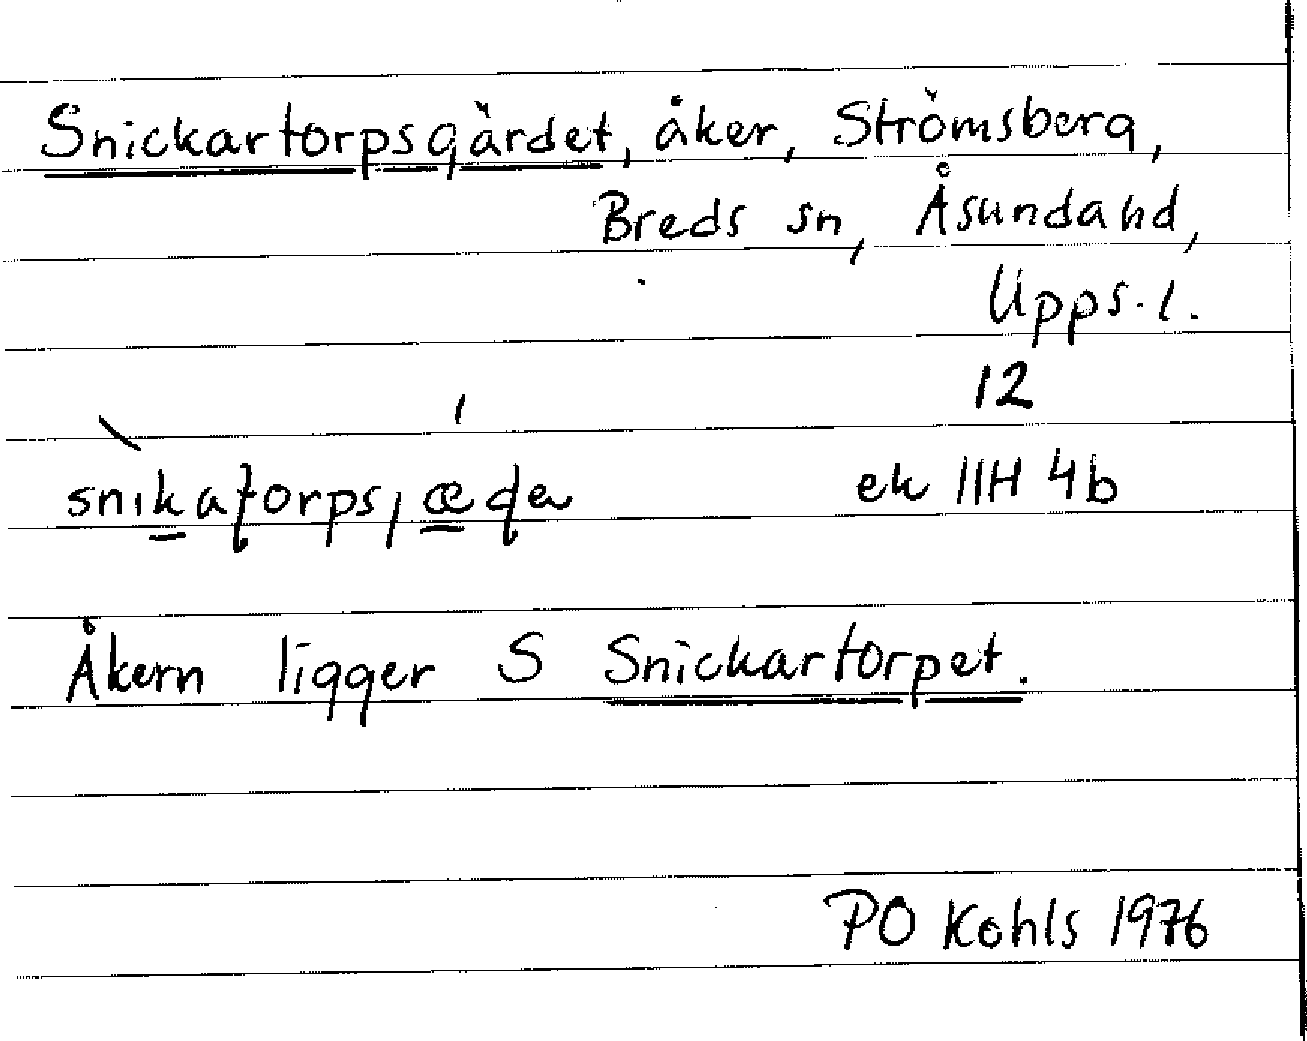 Snickartorpsgärdet, åker, Strömsberg,
Breds sn, Åsundahd,
Upps.l.
12
ek 11H 4b
Åkern ligger S Snickartorpet.
PO Kohls 1976